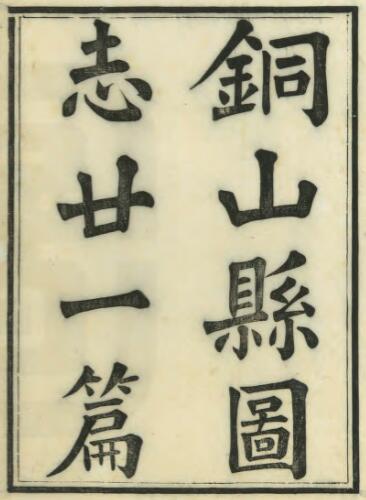 銅山縣圖
志廿一篇